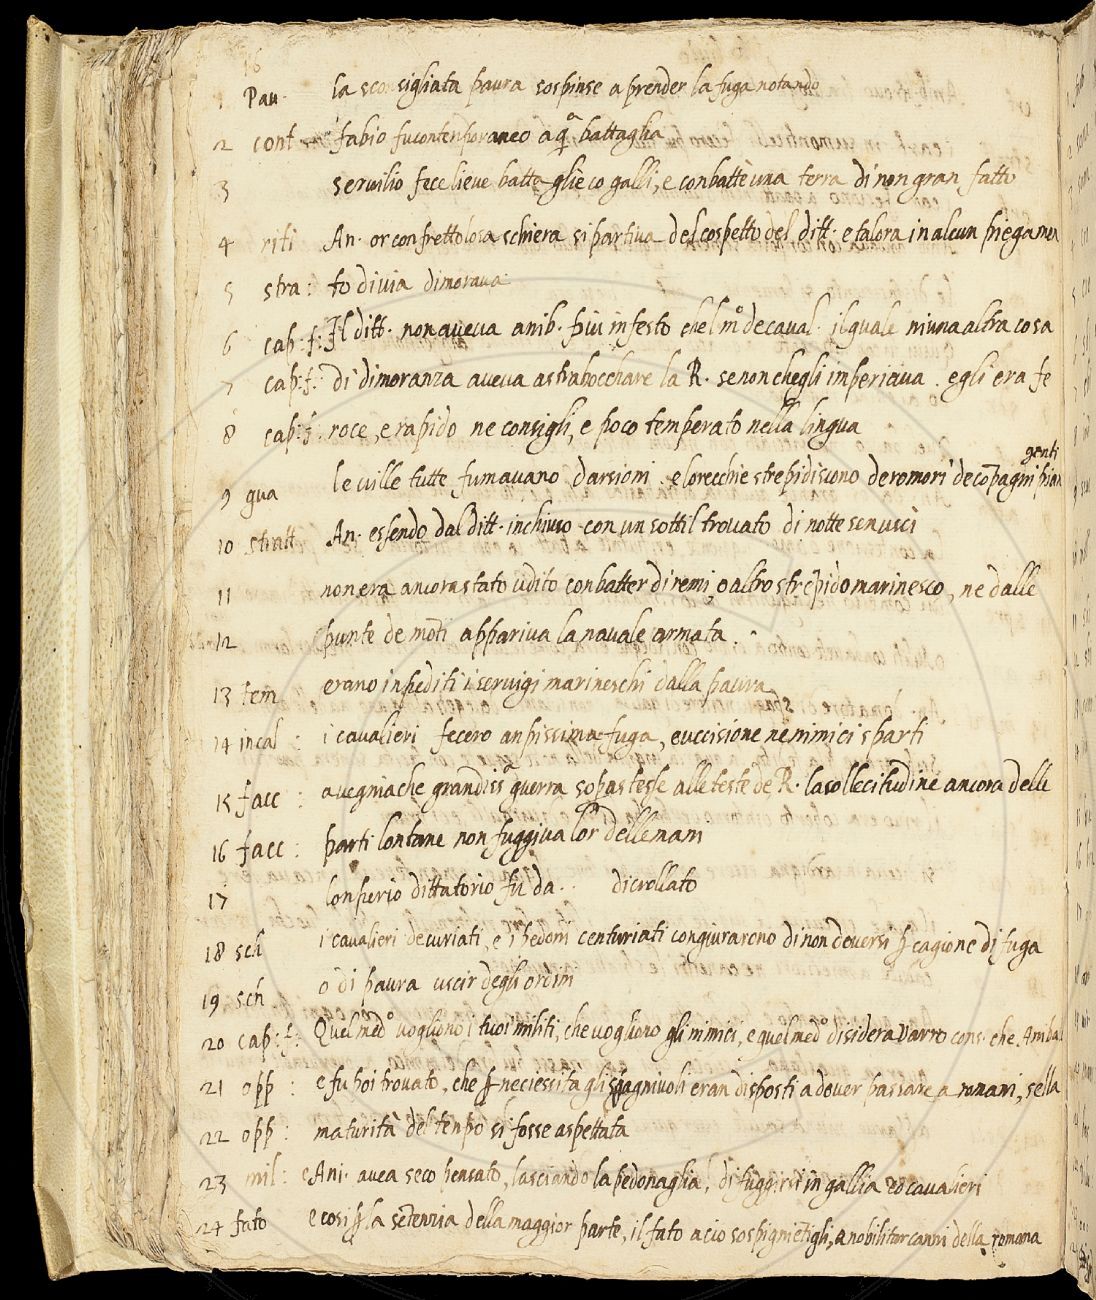 16
1 Pau. la sconsigliata paura sospinse a prender la fuga notando
2 cont fabio fu contenporaneo a qª battaglia
3 seruilio fece lieue battaglie co galli, e conbattè una terra di non gran fatto
4 riti An. or con frettolosa schiera si partiua del cospetto del ditt. e talora in alcun piega men
5 stra: to di uia dimoraua.
6 cap: f: Il ditt. non aueua anib. piu infesto chel mº de caual. il quale niuna altra cosa
7 cap: f: di dimoranza aueua a strabocchare la R. se non chegli inperiaua. egli era fe
8 cap: f: roce, e rapido ne consigli, e poco temperato nella lingua
genti
9 gua le uille tutte fumauano darsioni. e lorecchie strepidiscono de romori de cōpagni pian
10 stratt An. essendo dal ditt. inchiuso con un sottil trouato di notte sen usci
11 non era ancora stato udito conbatter di remi, o altro strepido marinesco, ne dalle
12 punte de moti appariua la nauale armata.
13 tem erano inpediti i seruigi marineschi dalla paura
14 incal: i caualieri fecero anpissima fuga, e uccisione ne nimici sparti
15 facc: auegnia che grandisª guerra sopastesse alle teste de R. la sollecitudine ancora delle
16 facc: parti lontane non fuggiua lor delle mani
17 lonperio dittatorio fu da.. dicrollato
18 sch i caualieri decuriati, e i pedoni centuriati congiurareno di non deuersi ꝑ cagione di fuga
19 sch o di paura uscir degli ordini
20 cap: f: Quel medº uogliono i tuoi militi, che uogliono gli nimici, e quel medº disidera Varro cons. che Aniba
21 opp: e fu poi trouato, che ꝑ neciessita gli spagniuoli eran disposti a deuer passare a romani, sella
22 opp: maturità del tenpo si fosse aspettata
23 mil: e Ani. auea seco pensato, lasciando la pedonaglia, di fuggirsi in gallia co caualieri
24 fato e cosi ꝑ la sētenzia della maggior parte, il fato a cio sospignietigli, a nobilitar canni della romana